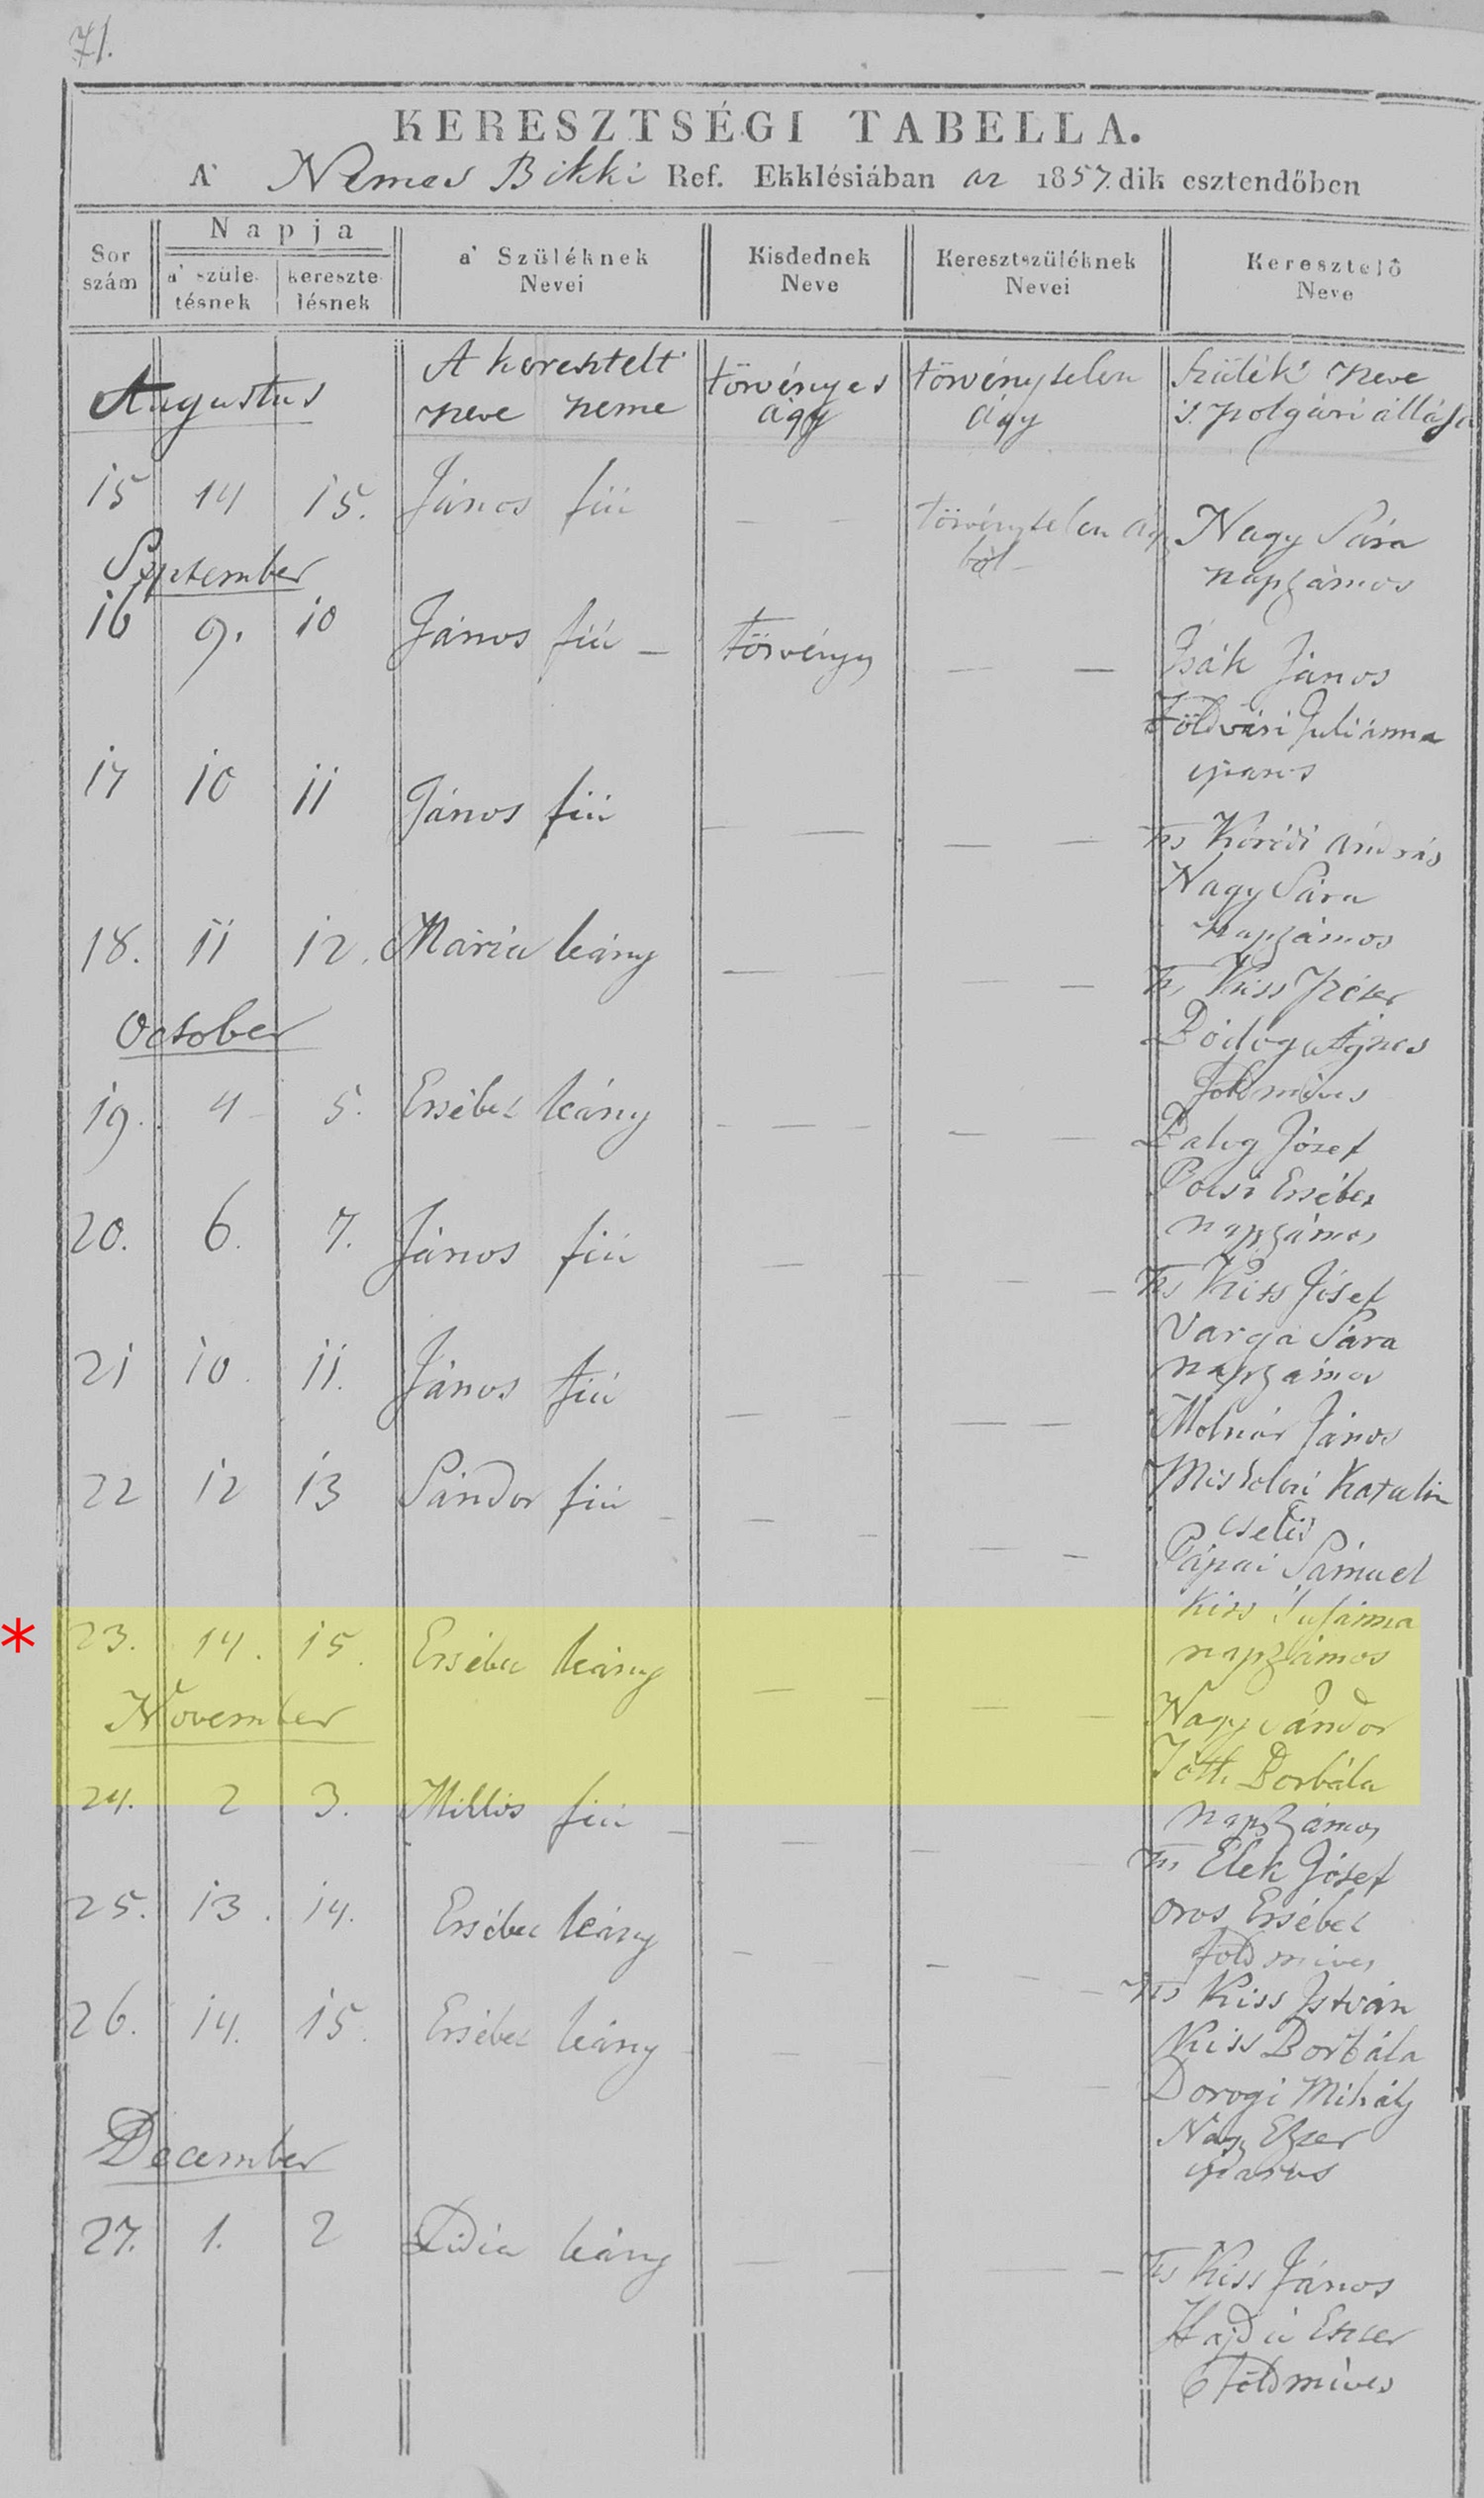 71.
KERESZTSÉGI TABELLA.
A' Nemes Bikki Ref. Ekklésiában az 1857.dik esztendőben
Sor szám
Napja
a' születésnek
keresztelésnek
a' Szüléknek Nevei
Kisdednek Neve
Keresztszüléknek Nevei
Keresztelő Neve
Augustus
A keresztelt neve neme
törvényes ágy
törvénytelen ágy
Szülék neve s polgári állása
15 14 15. János fiú — — törvénytelen ágyból — Nagy Sára
napszámos
September
16 9. 10 János fiú — törvényes — — Isák János
Földvári Juliánna
iparos
17 10 11 János fiú — — — — Ts András
Nagy Sára
napszámos
18. 11 12. Mária leány — — — — Ts Kiss
Ágnes
Földmives
October
19. 4 5. Ersébet leány — — — — — Balog József
Ersébet
napszámos
20. 6. 7. János fiú — — — — Ts Kiss Jósef
Varga Sára
napszámos
21 10. 11. János fiú — — — — Molnár János
Miskolczi Katalin
cseléd
22 12 13 Sándor fiú — — — — Pápai Sámuel
Kiss Susánna
napszámos
*
23. 14. 15. Ersébet leány — — — — Nagy Sándor
Tóth Borbála
napszámos
November
24. 2 3. Miklós fiú — — — Ts Elek Jósef
Oros Ersébet
földmives
25. 13. 14. Ersébet leány — — — — — Ts Kiss István
Kiss Borbála
26. 14. 15. Ersébet leány — — — — Dorogi Mihály
Nagy Eszter
iparos
December
27. 1. 2 Lidia leány — — — — Ts Kiss János
Hajdú Eszter
Földmives